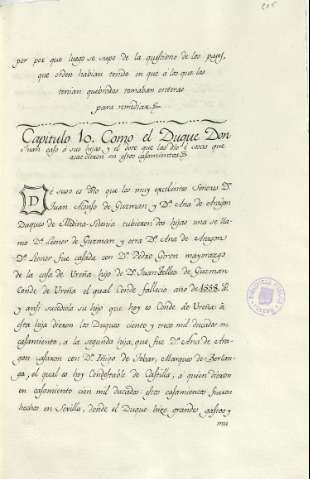 205
per por que luego se supo de la questione de los pays,
que orden habian tenido en que a los que las
tenian quebradas tomaban enteras
para remediar
Capitulo 10. Como el Duque Don
Juan caso a sus hijas, y el dote que las dio i cosas que
acaecieron en estos casamientos
De suso es dho que los muy excelentes Señores D.
Juan Alonso de Guzman y Dª Ana de Aragon
Duques de Medina-Sidonia tubieron dos hijas una se lla-
mo Dª Leonor de Guzman y otra Dª Ana de Aragon.
Dª Leonor fue casada con Dn Pedro Giron mayorazgo
de la casa de Ureña hijo de D. Juan Tellez de Guzman
Conde de Ureña el qual Conde fallecio año de 1558.
y ansi sucediole su hijo que hoy es Conde de Ureña: de
esta hija dieron los Duques ciento y trece mil ducados en
casamiento, a la segunda hija, que fue Dª Ana de Ara-
gon casaron con Dn Iñigo de Tobar, Marques de Berlan-
ga, el qual es hoy Condestable de Castilla, a quien dieron
en casamiento cien mil ducados: estos casamientos fueron
hechos en Sevilla, donde el Duque hizo grandes gastos y
mu